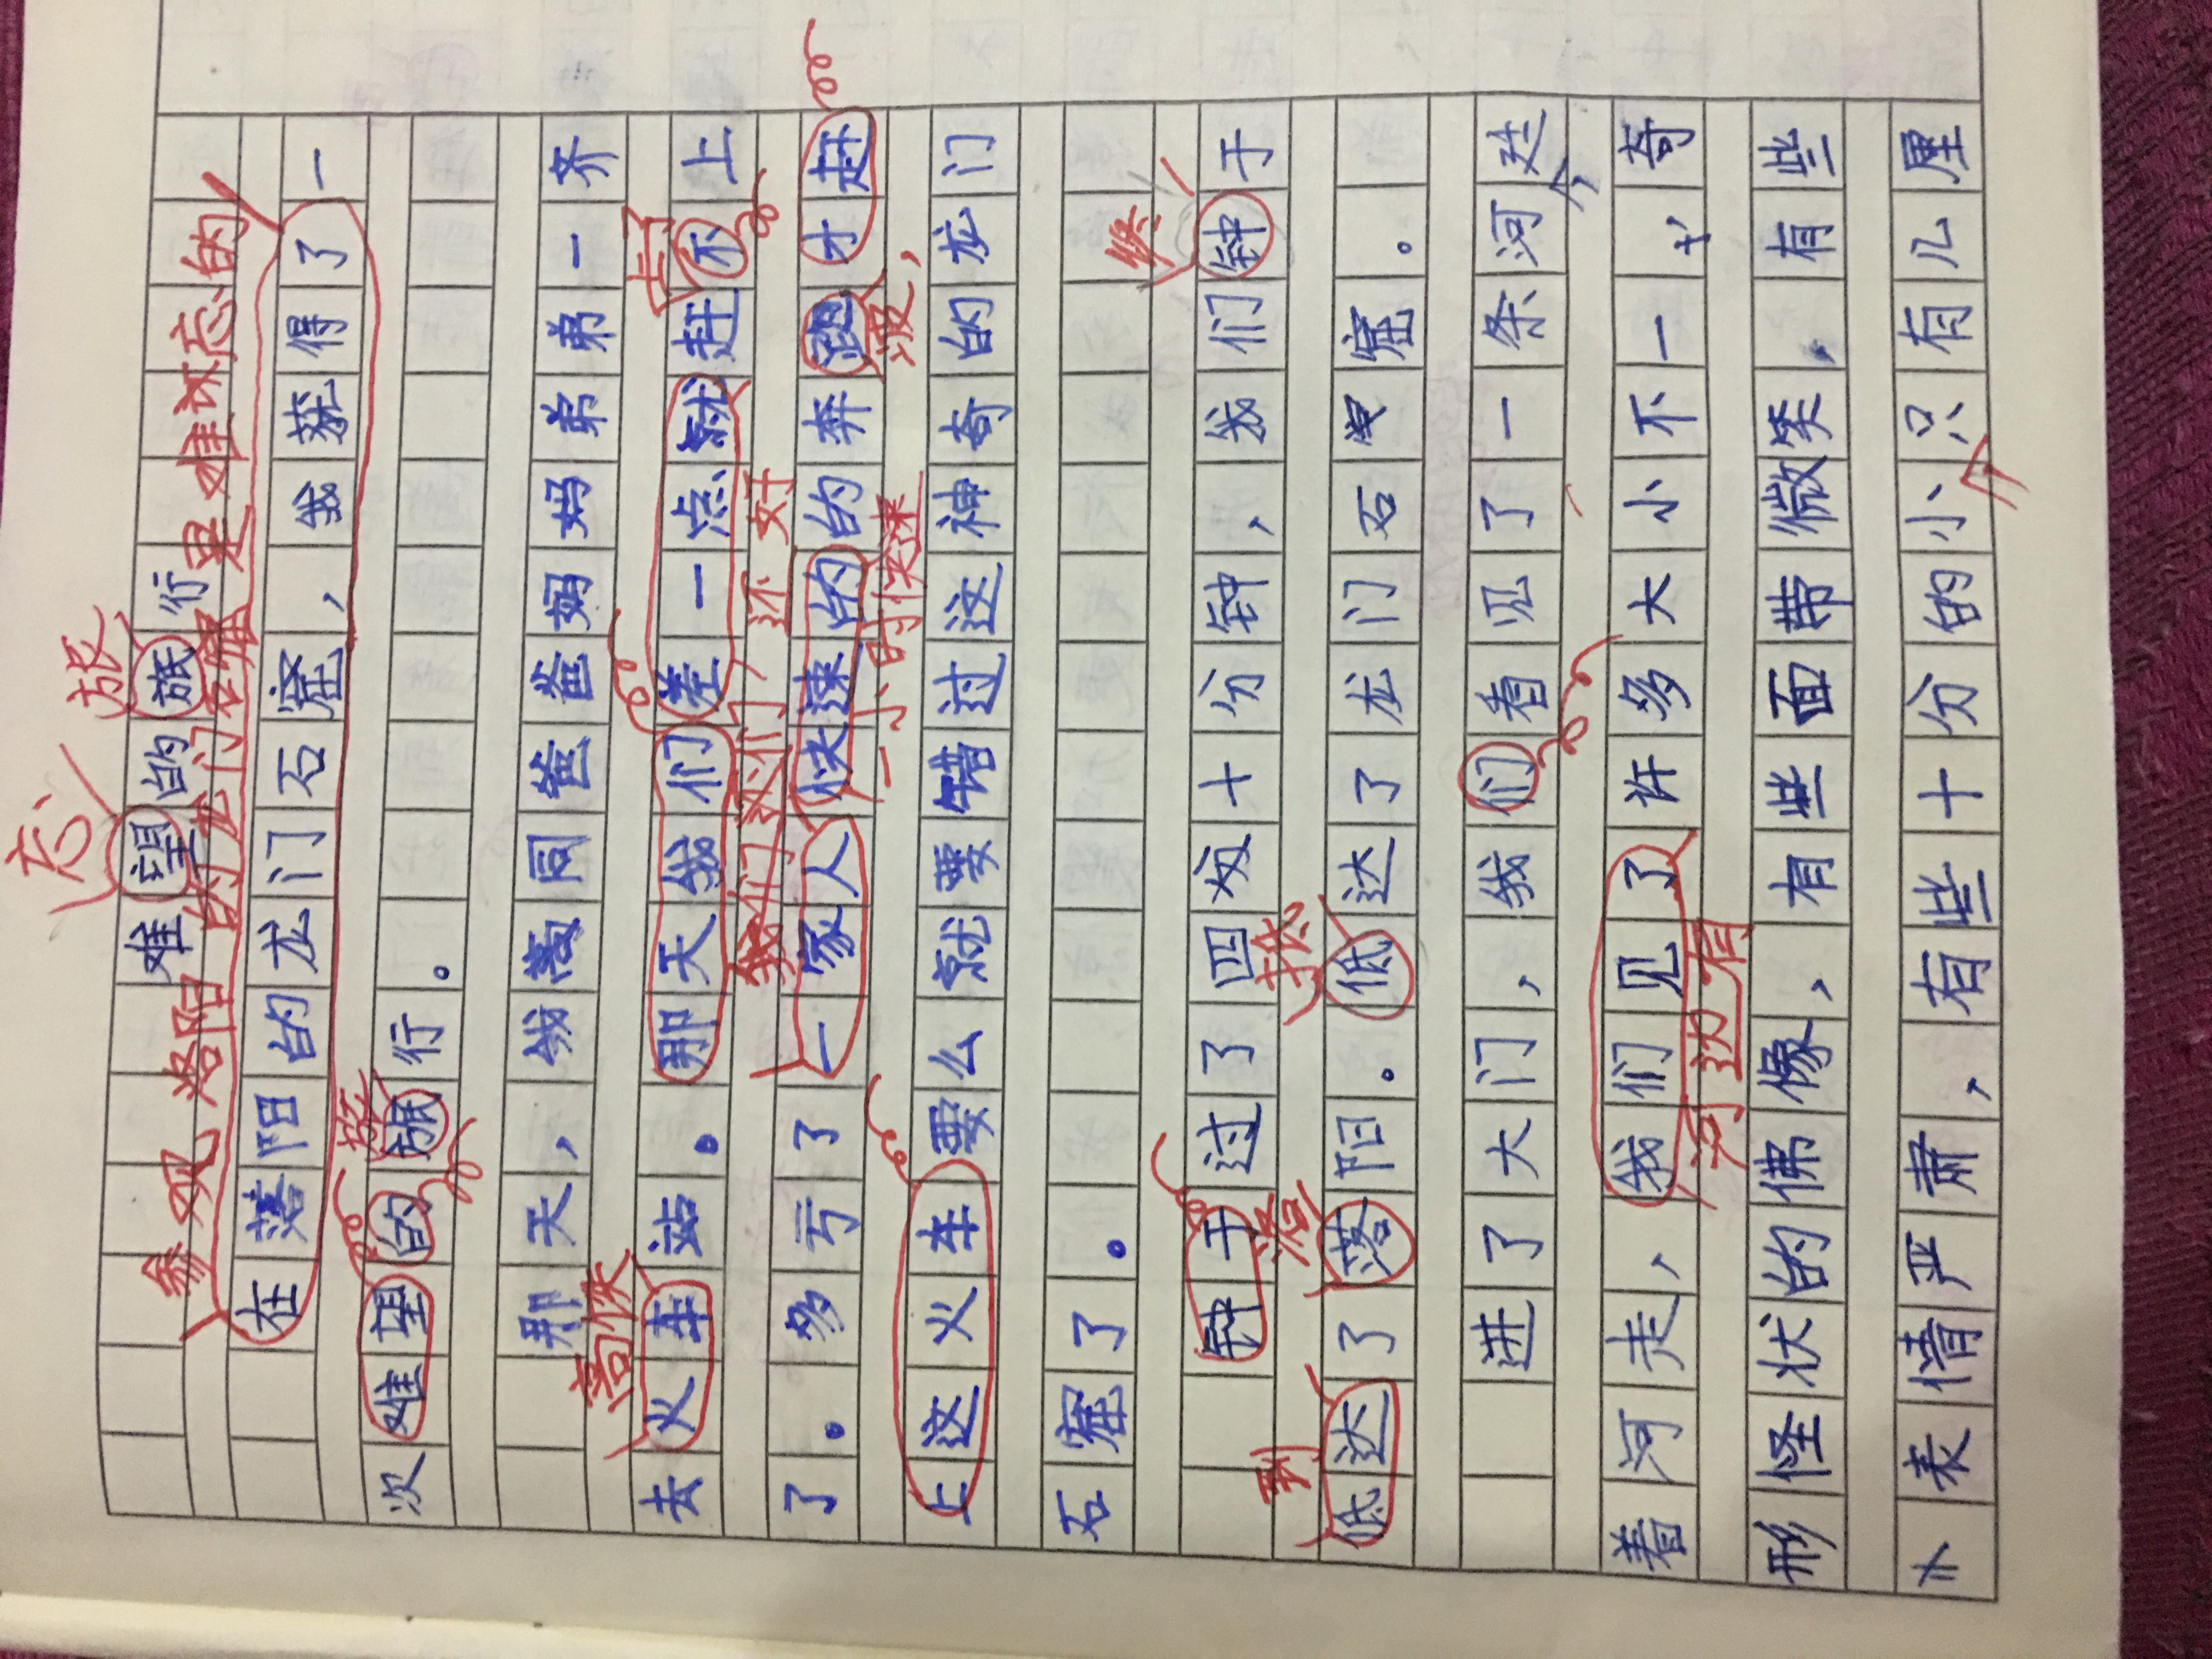 忘 旅
难望的旅行
参观洛阳的龙门石窟是难忘的
在落阳的龙门石窟，我获得了一
旅
次难望的旅行。
那天，我同爸爸妈妈弟弟一齐
高铁 点
去火车站。那天我们差一点就赶不上
还好
了。多亏了一家人快速的的奔才赶
一小时
上这火车要么就要错过这神奇的龙门
石窟了。
终
钟于过了四十分钟，我们钟于
到 洛 抵
低达了落阳。低达了龙门石窟。
进了大门，我们看见了一条河
着河走，我们见了许多大小不一，奇
河边有
形怪状的佛像，有些面带微笑，有些
表情严肃，有些十分的小只有几厘